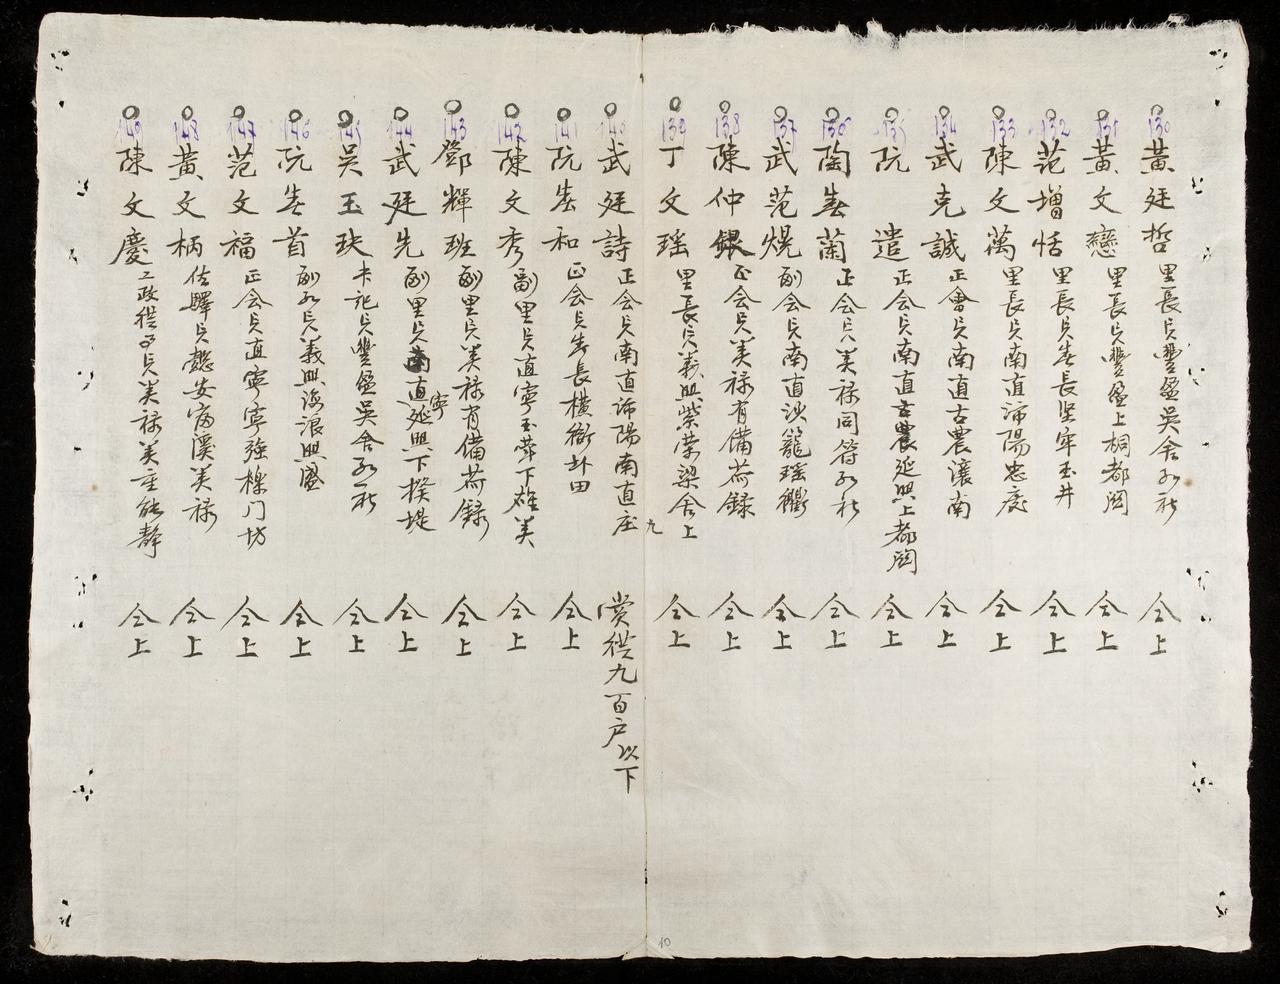 130 黃廷哲 里長員豐盈吳舍社 仝上
131 黃文戀 里長員豐盈上桐都 仝上
132 范增恬 里長員春長堅牢玉井 仝上
133 陳文萬 里長員南直沛陽忠 仝上
134 武克誠 正會員南直古農讓南 仝上
135 阮遣 正会員南直古農延興上都 仝上
136 陶春蘭 正会員美祿同符社 仝上
137 武范熀 副会員南直沙籠瑤衢 仝上
138 陳仲銀 正会員美祿有備荷錄 仝上
139 丁文瑤 里長員義興榮梁舍上 仝上
九
140 武廷詩 正会員南直沛陽南直庄 賞從九百戶以下
141 阮春和 正会員春長橫衝田 仝上
142 陳文秀 副里員直寧玉下雄美 仝上
143 鄧輝班 副里員美祿有備荷錄 仝上
144 武廷先 副里員直寧延興下揆堤 仝上
145 吳玉玦 卡記員豐盈吳舍社 仝上
146 阮春首 員義興海浪興盛 仝上
147 范文福 正会員直寧寧強門坊 仝上
148 黃文柄 佐驛員懿安溪美祿 仝上
149 陳文慶 政從員美祿美靜 仝上
10